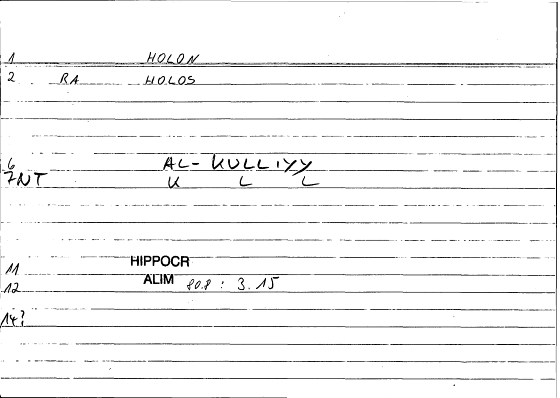 1 HOLON
2 RA HOLOS
6 AL-KULLIYY
7NT K L L
11 HIPPOCR
12 ALIM 80.8 : 3.15
14?